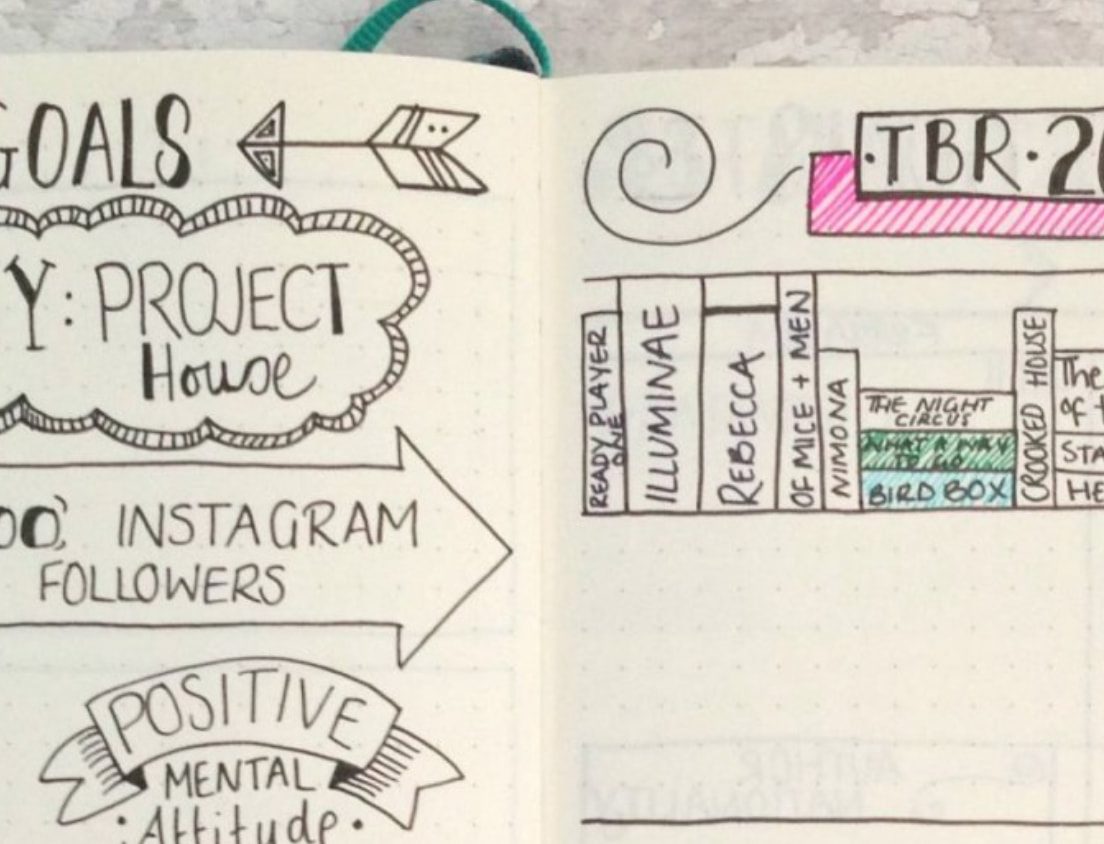 GOALS
Y: PROJECT
House
INSTAGRAM
FOLLOWERS
POSITIVE
MENTAL
• Attitude •
• TBR • 20
READY PLAYER
ONE
ILLUMINAE
REBECCA
OF MICE + MEN
NIMONA
THE NIGHT
CIRCUS
WHAT A WAY
TO GO
BIRD BOX
CROOKED HOUSE
The
of t
STA
HE
AUTHOR
NATIONALITY